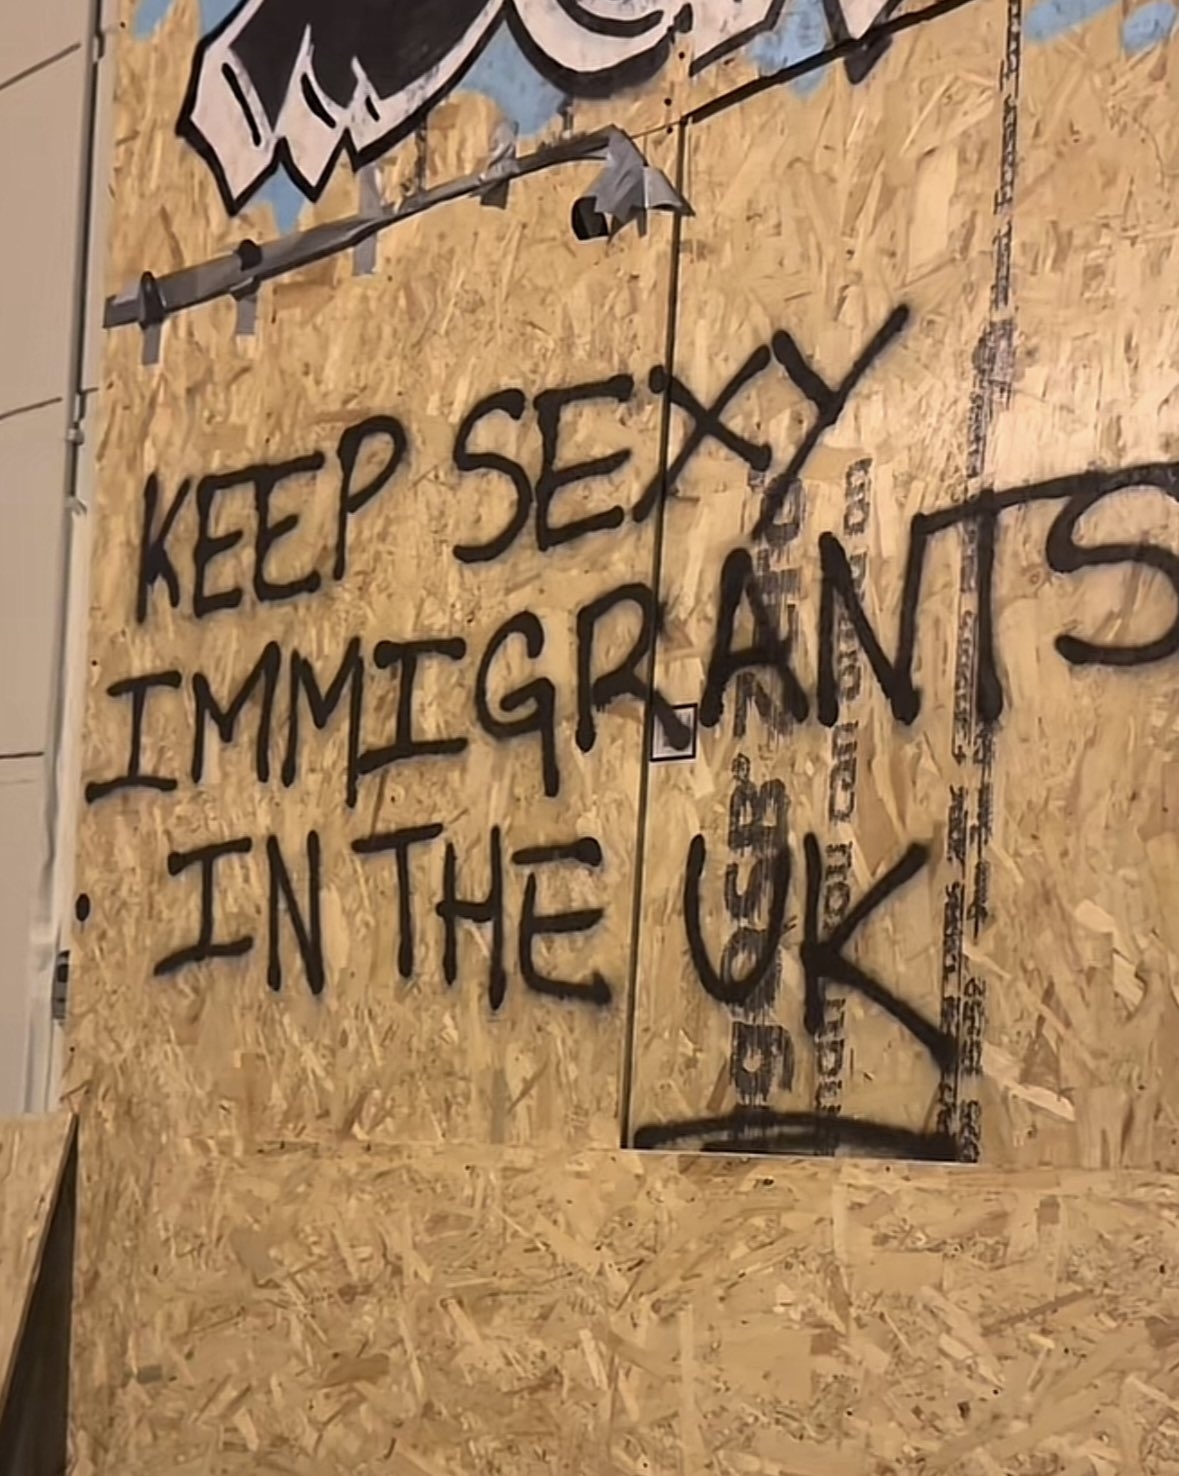 KEEP SEXY
IMMIGRANTS
IN THE UK